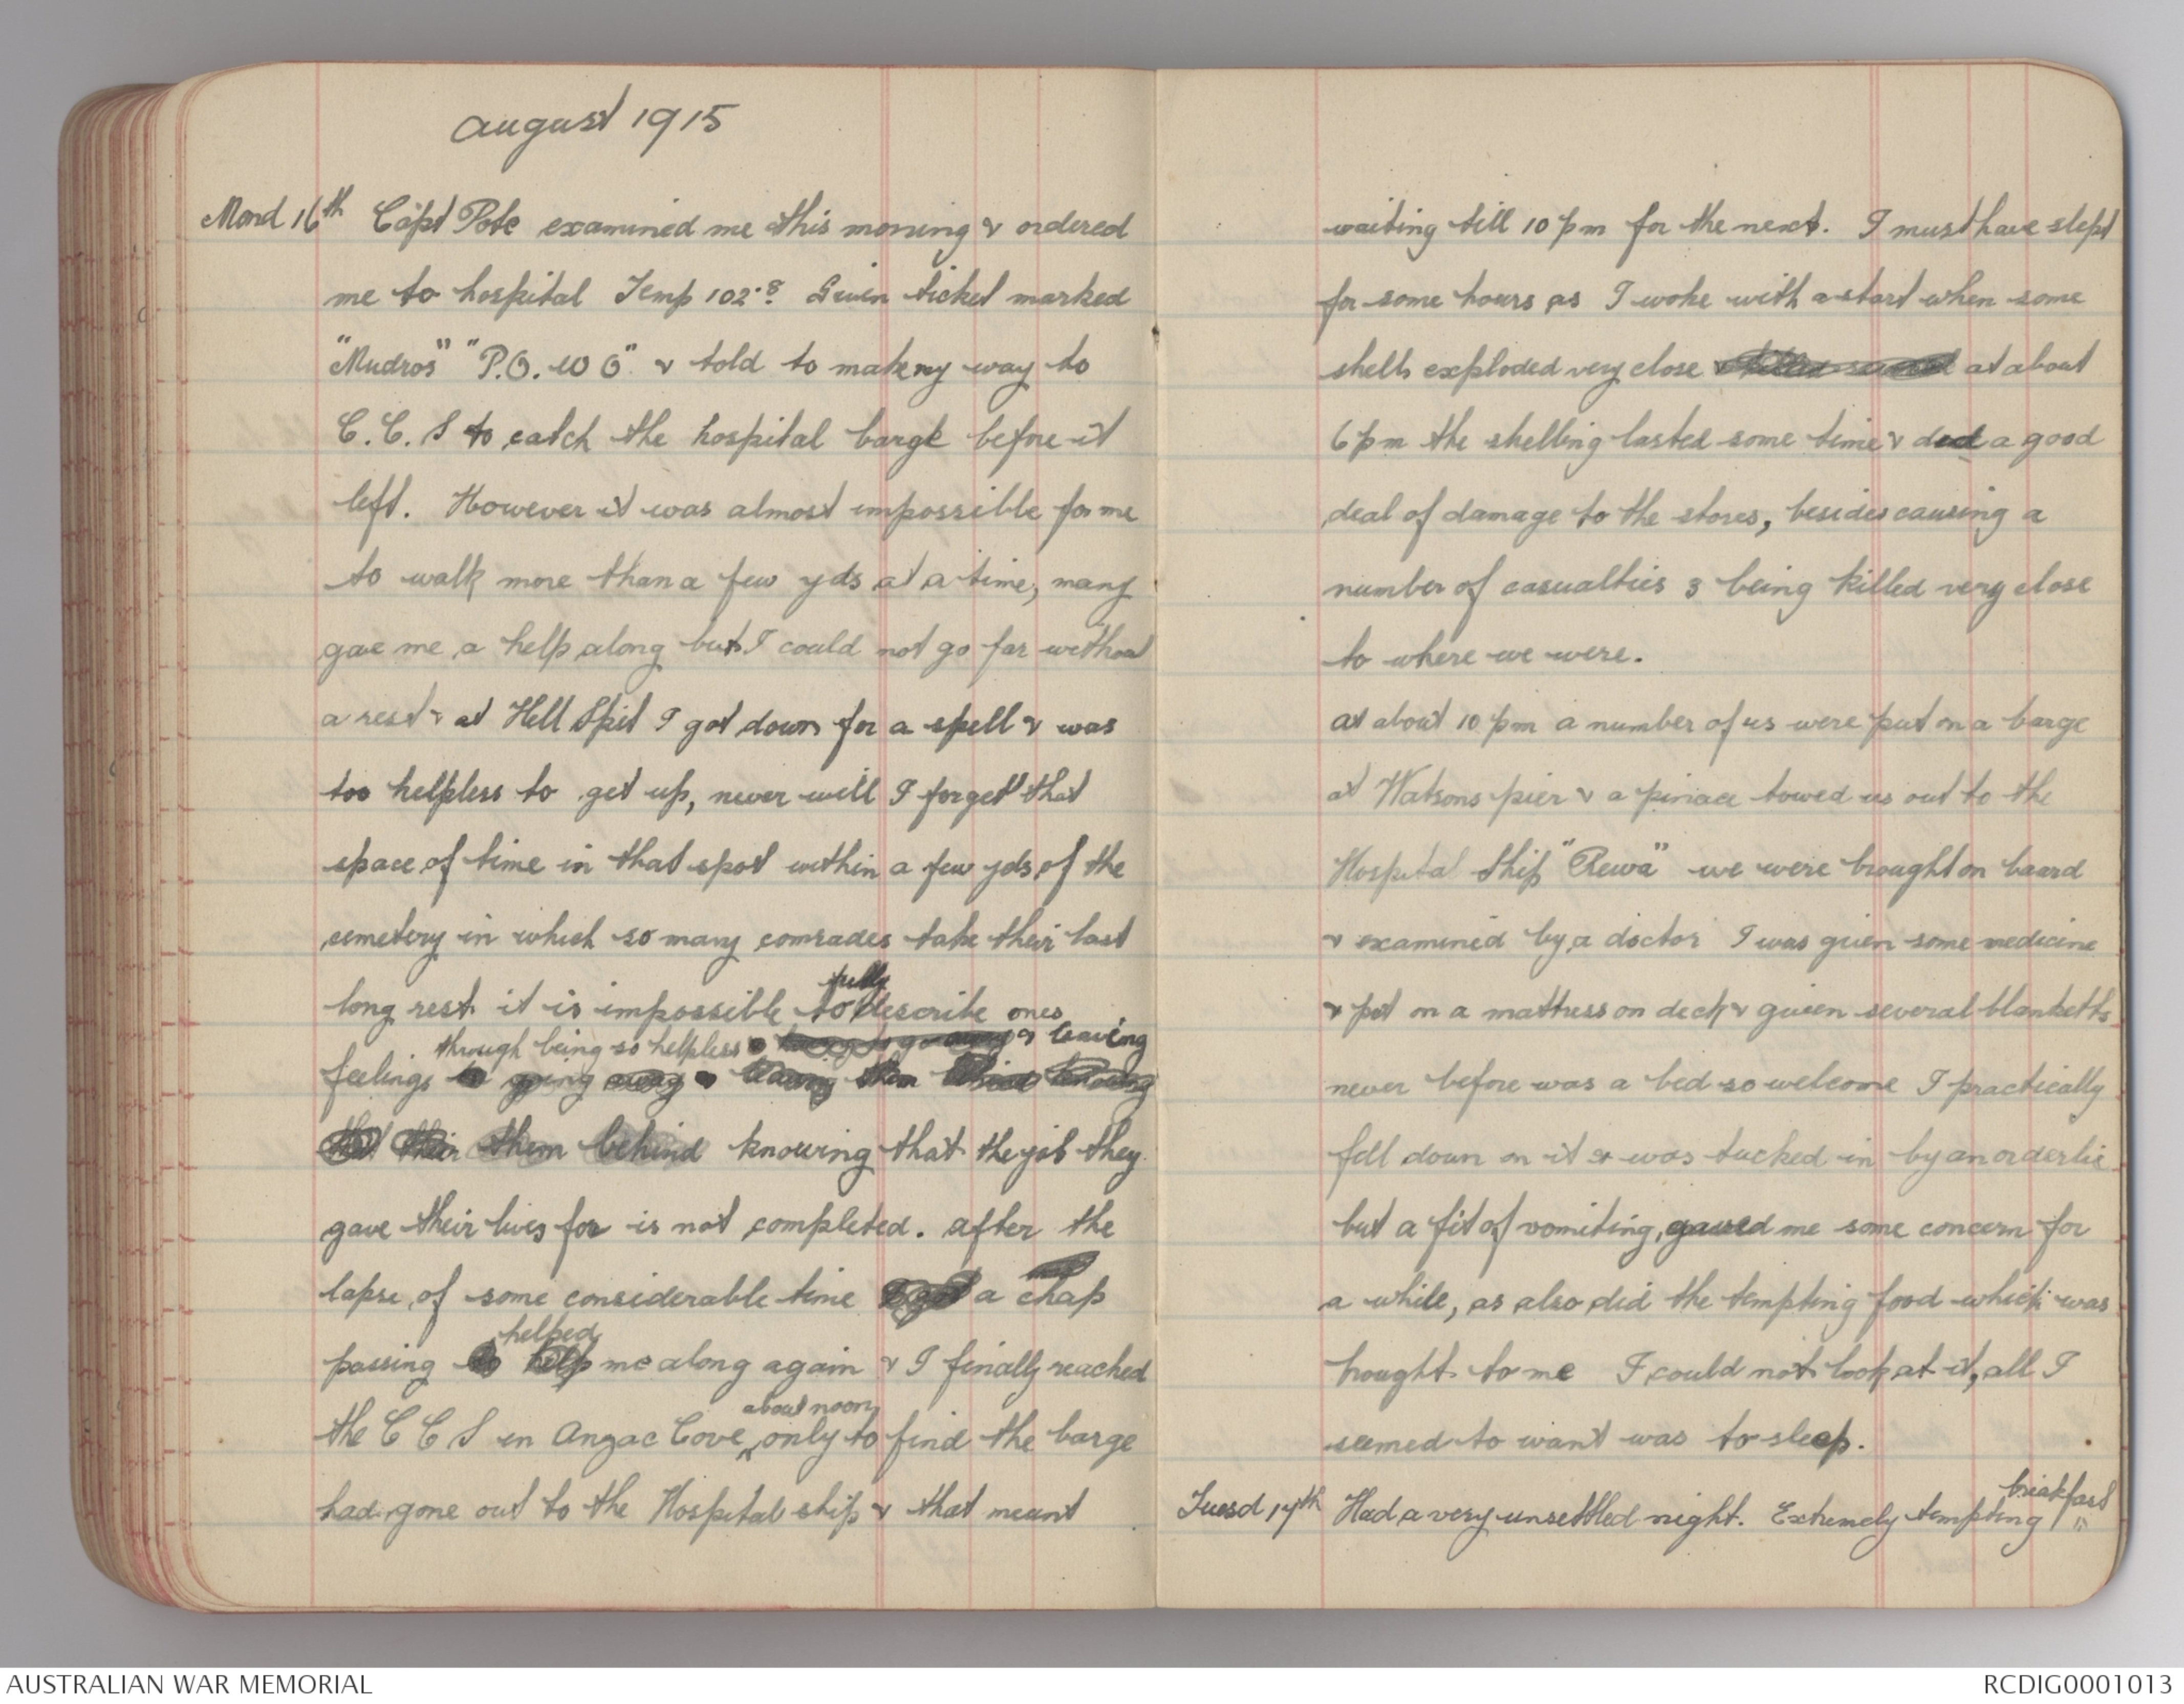 August 1915
Mond 16th Capt Pote examined me this morning & ordered
me to hospital Temp 102.8 Given ticket marked
"Mudros" "P.O. W O" & told to make my way to
C.C.S to catch the hospital barge before it
left. However it was almost impossible for me
to walk more than a few yds at a time, many
gave me a help along but I could not go far without
a rest & at Hell Spit I got down for a spell & was
too helpless to get up, never will I forget that
space of time in that spot within a few yds of the
cemetery in which so many comrades take their last
fully
long rest it is impossible to describe ones
through being so helpless & leaving
feelings going away leaving them behind knowing
that their them behind knowing that the job they
gave their lives for is not completed. After the
lapse of some considerable time a chap
helped
passing to help me along again & I finally reached
about noon
the C C S in Anzac Cove, only to find the barge
had gone out to the Hospital ship & that meant
waiting till 10 pm for the next. I must have slept
for some hours as I woke with a start when some
shells exploded very close at about
6 pm the shelling lasted some time & did a good
deal of damage to the stores, besides causing a
number of casualties 3 being killed very close
to where we were.
At about 10 pm a number of us were put on a barge
at Watsons pier & a pinace towed us out to the
Hospital Ship "Rewa" we were brought on board
& examined by a doctor I was given some medicine
& put on a mattress on deck & given several blanketts
never before was a bed so welcome I practically
fell down on it & was tucked in by an orderlie
but a fit of vomiting, caused me some concern for
a while, as also did the tempting food which was
brought to me I could not look at it, all I
seemed to want was to sleep.
breakfast
Tuesd 17th Had a very unsettled night. Extremely tempting "
AUSTRALIAN WAR MEMORIAL
RCDIG0001013